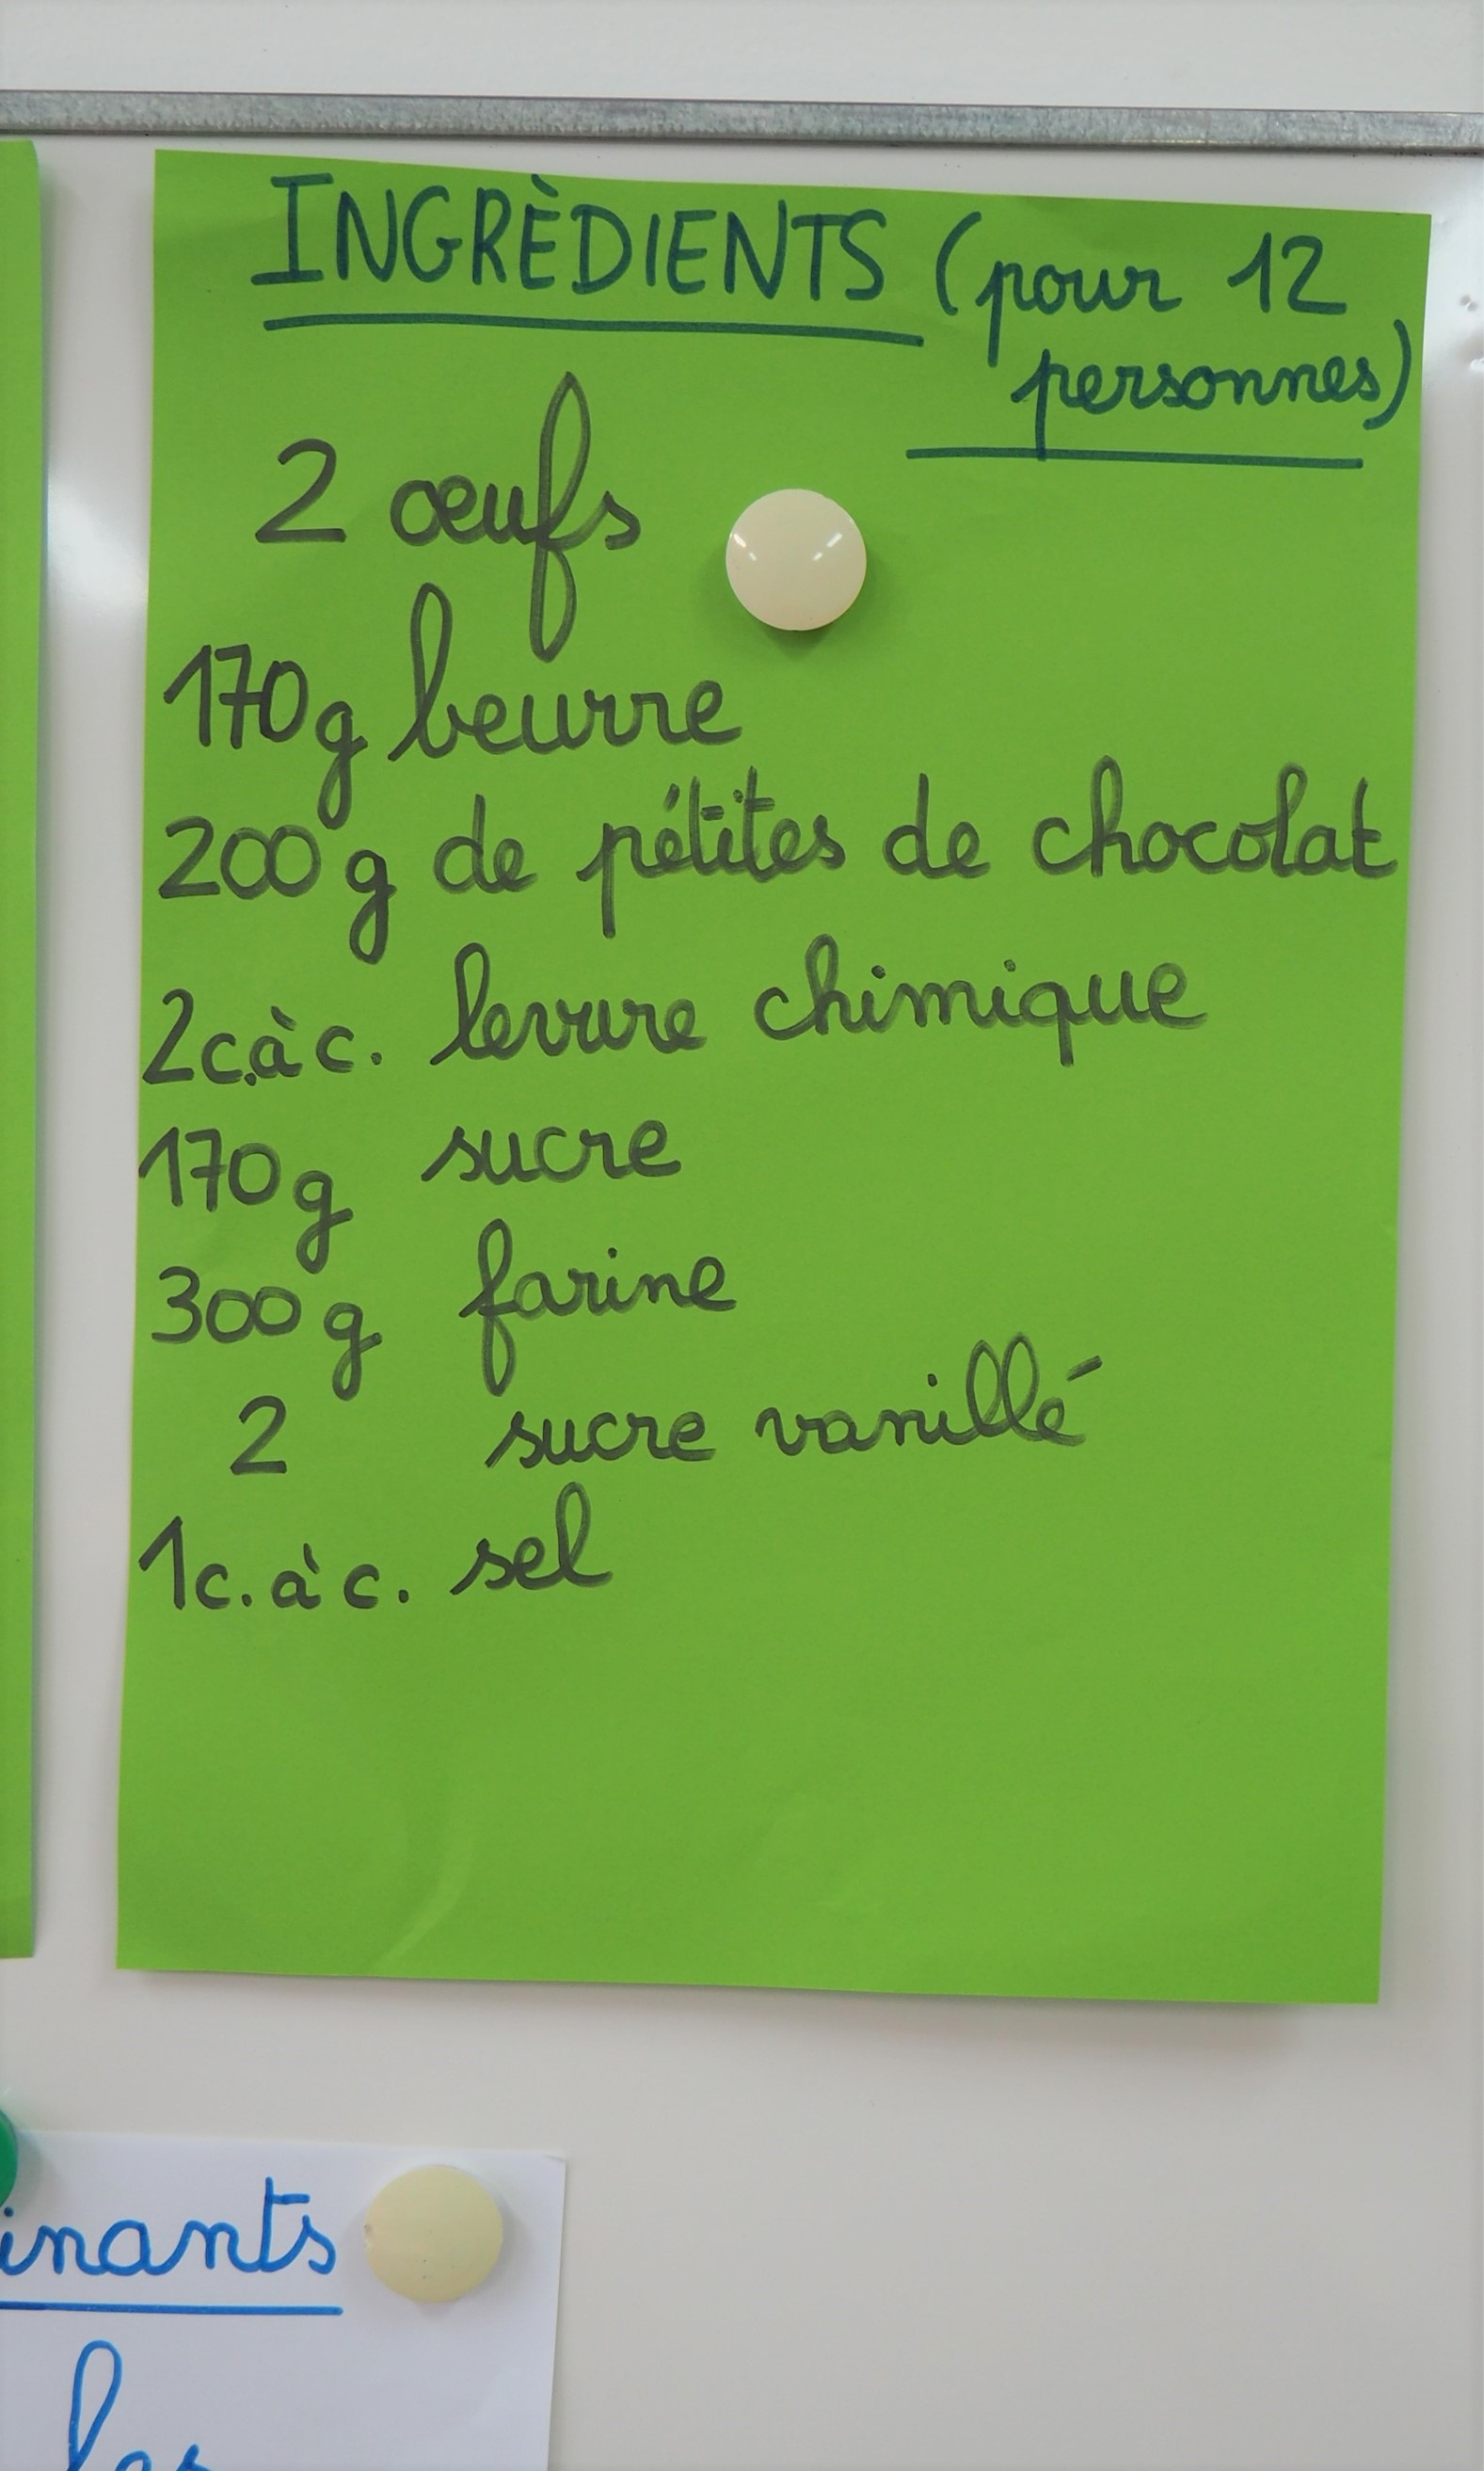 INGRÈDIENTS (pour 12
personnes)
2 œufs
170g beurre
200g de pétites de chocolat
2c.à c. levure chimique
170g sucre
300g farine
2 sucre vanillé
1c. à c. sel
inants
les